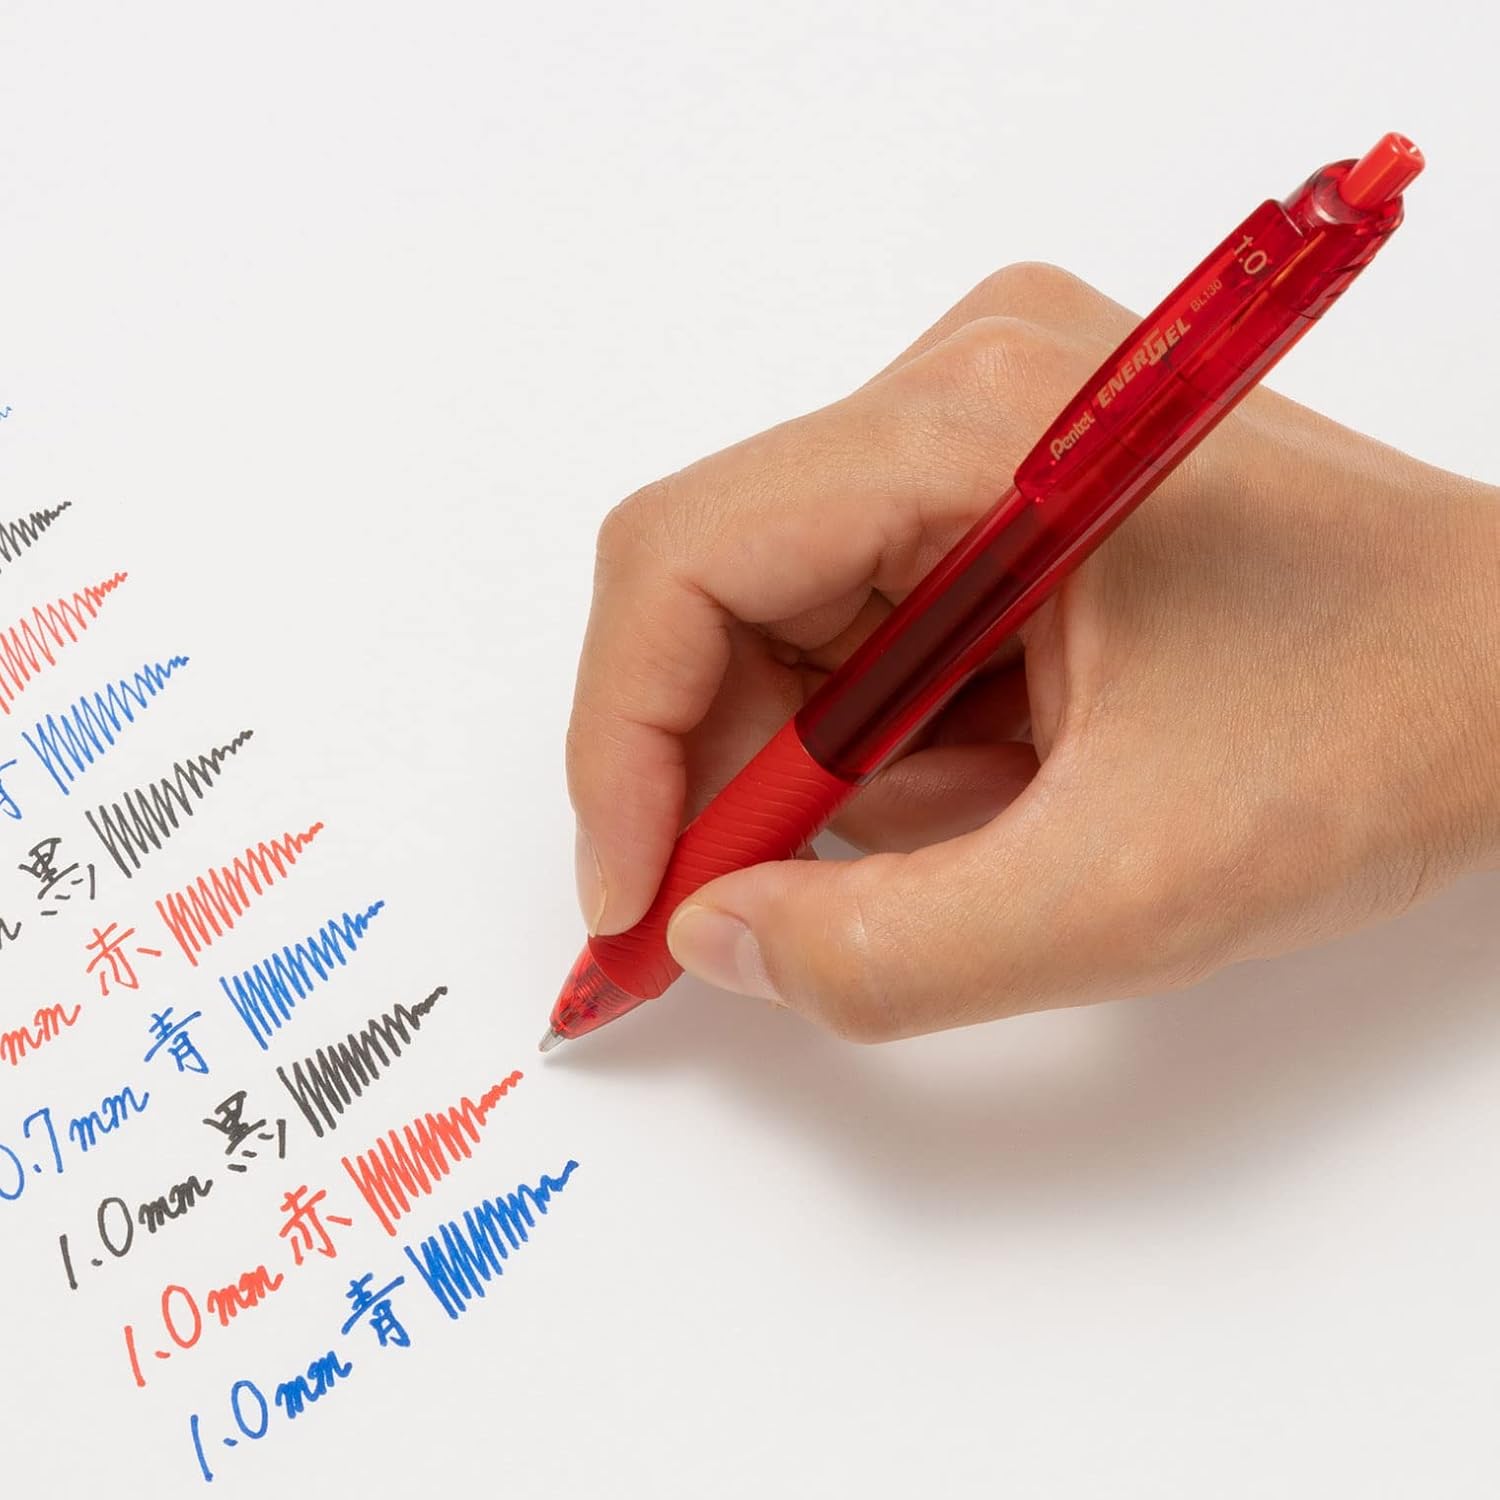 黒
mm 赤
0.7mm 青
1.0mm 黒
1.0mm 赤
1.0mm 青
Pentel ENERGEL BL130
1.0